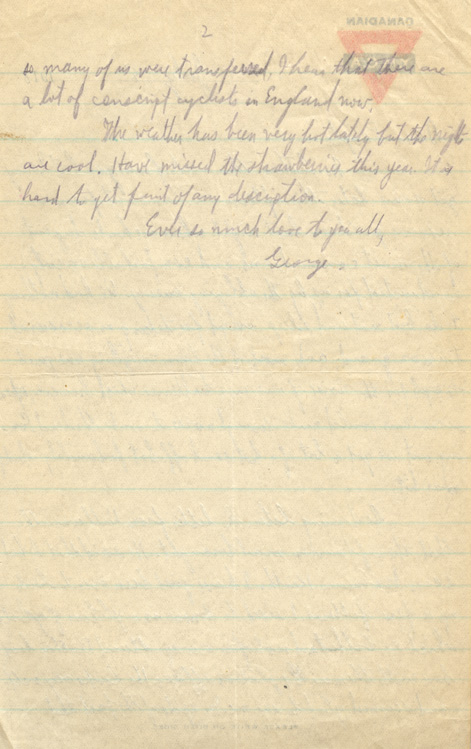 2
so many of us were transferred. I hear that there are
a lot of conscript cyclists in England now.
The weather has been very hot lately but the nights
are cool. Have missed the strawberries this year. It is
hard to get fruit of any description.
Ever so much love to you all,
George.
CANADIAN